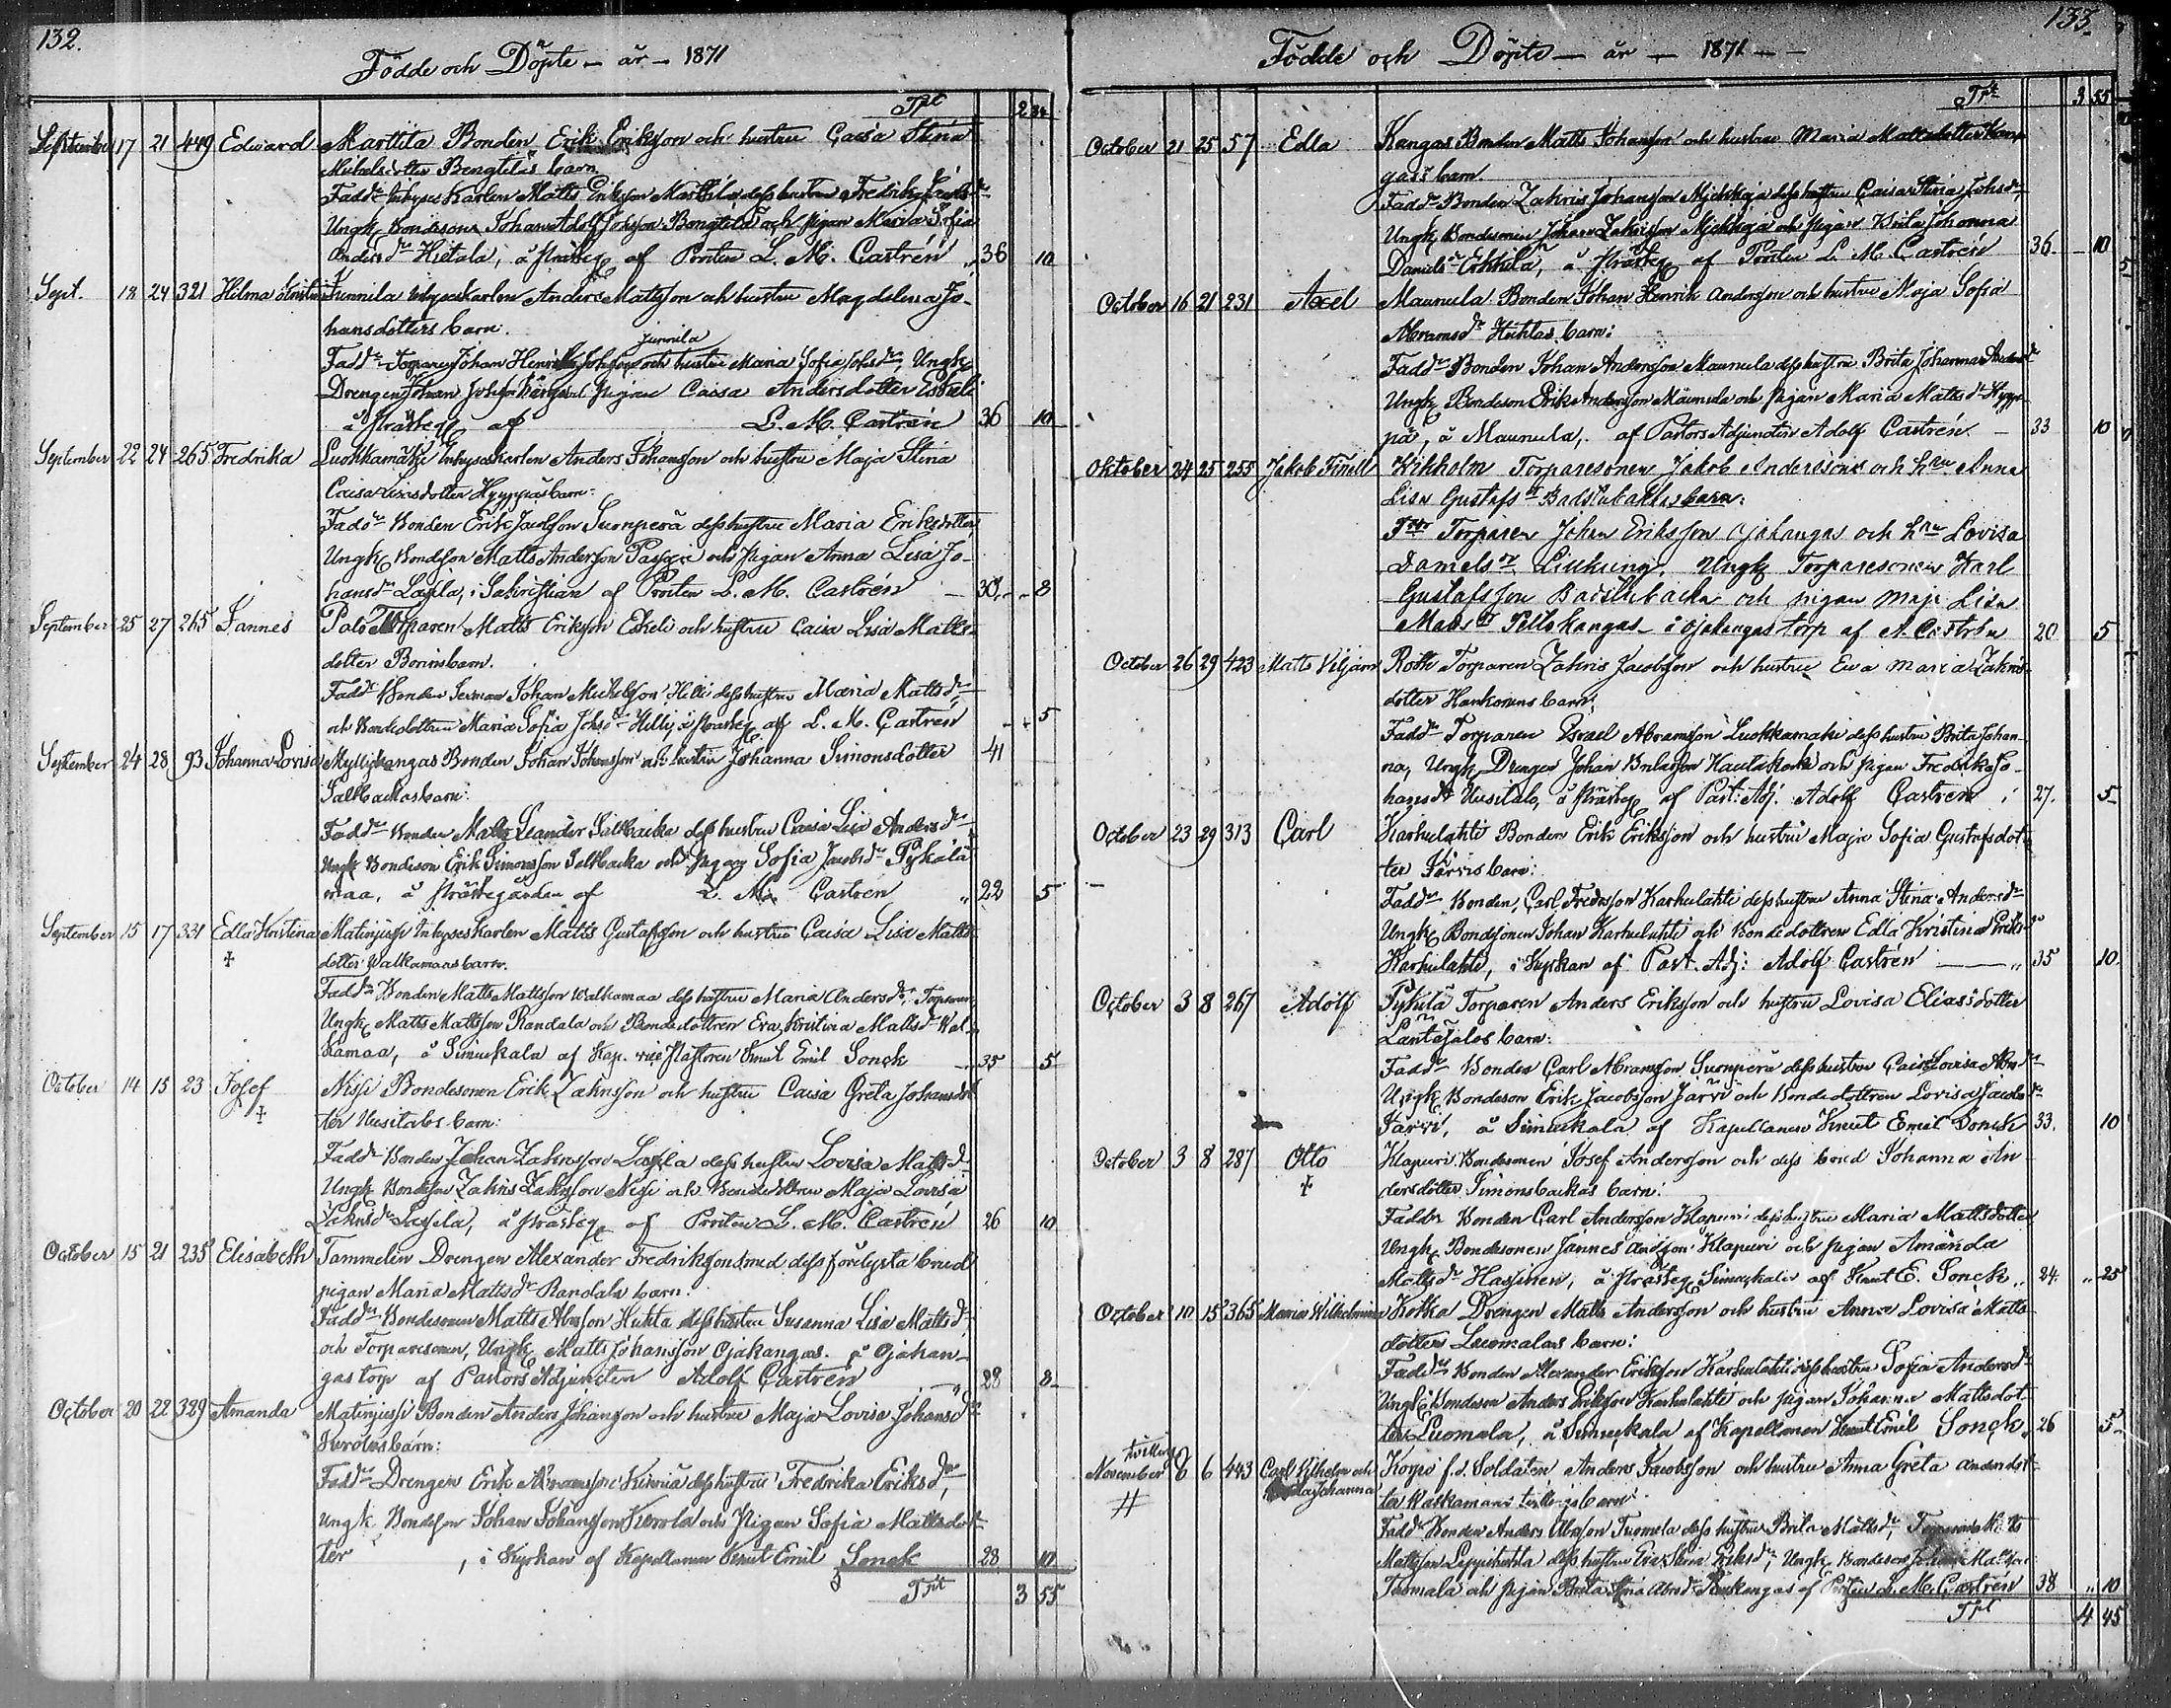 132.
Födde och Döpte - år - 1871
Tpt 2 34
September 17 21 449 Edward Marttila Bonden Erik Eriksson och hustru Caisa Stina
Michelsdotter Bengtiläs barn
Fadd: Inhyses Karlen Matts Eriksson Marttila dess hustru Fredrika
Ungk Bondesonen Johan Adolf Bengtilä och pigan Maria Sofia
Anders dr Hietala, å Prästeg af Prosten L. M. Castrén „ 36 10
Sept. 18 24 321 Hilma Kristina Junnila Inhyseskarlen Anders Mattsson och hustru Magdalena Jo-
hansdotters barn.
Junnila
Fadd Torparen Johan Henrik och hustru Maria Sofia Johsdr, Ungk
Drengen Johan pigan Caisa Andersdotter Eskeli
å Prästeg af L. M. Castrén 36 10
September 22 24 265 Fredrika Luokkamäki Inhyseskarlen Anders Johansson och hustru Maja Stina
Caisa Lisasdotter Hyyppäs barn:
Fadd Bonden Erik Jacobsson Suonperä dess hustru Maria Eriksdotter
Ungk Bondeson Matts Andersson och pigan Anna Lisa Jo-
hansdr Lassila, i Sakristian af Prosten L. M. Castrén - 30 - 8
September 25 27 265 Jannes Palo Torparen Matts Eriksson Eskeli och hustru Caisa Lisa Matts-
dotter Borinsbarn.
Fadd Bonden Johan Michelsson Hilli dess hustru Maria Mattsdr
och Bondedottren Maria Sofia Johsdr Hilli, å Prästeg af L. M. Castrén - 5
September 24 28 93 Johanna Lovisa Myllykangas Bonden Johan Johansson och hustru Johanna Simonsdotter 41
Salbackas barn:
Fadd Bonden Matts Leander Salbacka dess hustru Caisa Lisa Andersdr
Ungk Bondeson Erik Simonsson Salbacka och pigan Sofia Jacobsdr Pykälä
maa, å Prästegården af L. M. Castrén „ 22 5
September 15 17 331 Edla Kristina Matinjussi Inhyseskarlen Matts Gustafsson och hustru Caisa Lisa Matts-
‡ dotter Walkamas barn.
Fadd Bonden Matts Mattsson Walkamaa dess hustru Maria Andersdr,
Ungk Matts Mattsson Randala och Bondedottren Eva Kristina Mattsdr Wal-
kamaa, å Simukala af Kap. Emil Sonck 35 5
October 14 15 23 Josef Nissi Bondesonen Erik Zakrisson och hustru Caisa Greta Johansdot
‡ ter Uusitalos barn:
Fadd Bonden Johan Zakrisson Lassila dess hustru Lovisa Mattsdr
Ungk Bondeson Zakris Zakrisson Nissi och Bondedottren Maja Lovisa
Zakrisdr Lassila, å Prästeg af Prosten L. M. Castrén 26 10
October 15 21 235 Elisabeth Tammelin Drengen Alexander Fredriksson med dess förelysta brud
pigan Maria Mattsdr Randalas barn.
Fadd Bondesonen Matts Abrsson Huhta dess hustru Susanna Lisa Mattsdr
och Torparesonen, Ungk Matts Johansson Ojakangas. å Ojakan-
gas torp af Pastors Adjuncten Adolf Castrén 28 8
October 20 22 389 Amanda Matinjussi Bonden Anders Johansson och hustru Maja Lovisa Johansdr
Kerolas barn:
Fadd Drengen Erik Abramsson dess hustru Fredrika Eriksdr,
Ungk Bondeson Johan Johansson Kerola och Pigan Sofia Mattsdot
ter , i Kyrkan af Kapellanen Knut Emil Sonck 28 10
Tpt 3 55
133.
Födde och Döpte - år - 1871 - -
Tpt 3 55
October 21 25 57 Edla Kangas Bonden Matts Johansson och hustru Maria Mattsdotter Kan-
gas's barn.
Fadd Bonden Zakris Johansson dess hustru Caisa Stina Johsdr,
Ungk Bondesonen Johan Zakrisson och pigan Brita Johanna
Danielsdr Erkkilä, å Prästeg af Prosten L. M. Castrén 36 - 10
October 16 21 231 Axel Maunula Bonden Johan Henrik Andersson och hustru Maja Sofia
Abramsdr Huhtas barn:
Fadd Bonden Johan Andersson Maunula dess hustru Brita Johanna Andersdr
Ungk Bondeson Erik Andersson Maunula och pigan Maria Mattsdr Hyyp-
pä, å Maunula, af Pastors Adjuncten Adolf Castrén. - 33 10
Oktober 24 25 255 Jakob Finell Wikholm Torparesonen Jakob Andersson och hru Anna
Lisa Gustafsdr Badstubackas barn:
Fddr Torparen Johan Eriksson Ojakangas och hru Lovisa
Danielsdr Lilkning. Ungk Torparesonen Karl
Gustafsson Badstubacka och pigan Maja Lisa
Mattsdr Pellokangas - i Ojakangas torp af A. Castrén 20 5
October 26 29 423 Matts Viljam Roth Torparen Zakris Jacobsson och hustru Eva Maria Zakris-
dotter Hankonens barn:
Fadd Torparen Israel Abramsson Luokkamäki dess hustru Brita Johan-
na, Ungk Drengen Johan och pigan Fredrika Jo-
hansdr Uusitalo, å Prästeg af Past. Adj. Adolf Castrén 27. 5
October 23 29 313 Carl Karhulahti Bonden Erik Eriksson och hustru Maja Sofia Gustafsdot
ter Järvis barn:
Fadd Bonden, Carl Fredrsson Karhulahti dess hustru Anna Stina Andersdr
Ungk Bondesonen Johan Karhulahti och Bondedottren Edla Kristina Eriksdr
Karhulahti, i Kyrkan af Past. Adj: Adolf Castrén - „ 35 10.
October 3 8 267 Adolf Pykälä Torparen Anders Eriksson och hustru Lovisa Eliasdotter
Lantajalas barn:
Fadd Bonden Carl Abramsson Suonperä dess hustru Caisa Lovisa Abrsdr
Ungk Bondeson Erik Jacobsson Järvi och Bondedottren Lovisa Jacobsdr
Järvi, å Simukala af Kapellanen Knut Emil Sonck 33. 10
October 3 8 287 Otto Klapuri Bondesonen Josef Andersson och dess brud Johanna An
‡ dersdotter Simonsbackas barn:
Faddr Bonden Carl Andersson Klapuri dess hustru Maria Mattsdotter
Ungk Bondesonen Jannes Andsson Klapuri och pigan Amanda
Mattsdr Hassinen, å Prästeg Simukala af Knut E. Sonck „ 24. „ 25
October 10 15 365 Maria Wilhelmina Kotka Drengen Matts Andersson och hustru Anna Lovisa Matts
dotter Luomalas barn:
Fadd Bonden Alexander Eriksson Karhulahti dess hustru Sofia Andersdr
Ungk Bondeson Anders Eriksson Karhulahti och pigan Johanna Mattsdot
ter Luomala, å Simukala af Kapellanen Knut Emil Sonck. 26 5
tvilling
November 6 443 Carl Vilhelm och Korpi f.d. Soldaten Anders Jacobsson och hustru Anna Greta Andersdot
# Johanna ter Walkamas tvillingsbarn
Fadd Bonden Anders Abrsson Tuomela dess hustru Brita Mattsdr,
Mattsson Leppihuhta dess hustru Eva Stina Eriksdr, Ungk Bondeson
Tuomala och pigan Brita Stina Abrsdr af Prosten L. M. Castrén 38 „ 10
Tpt 4 45